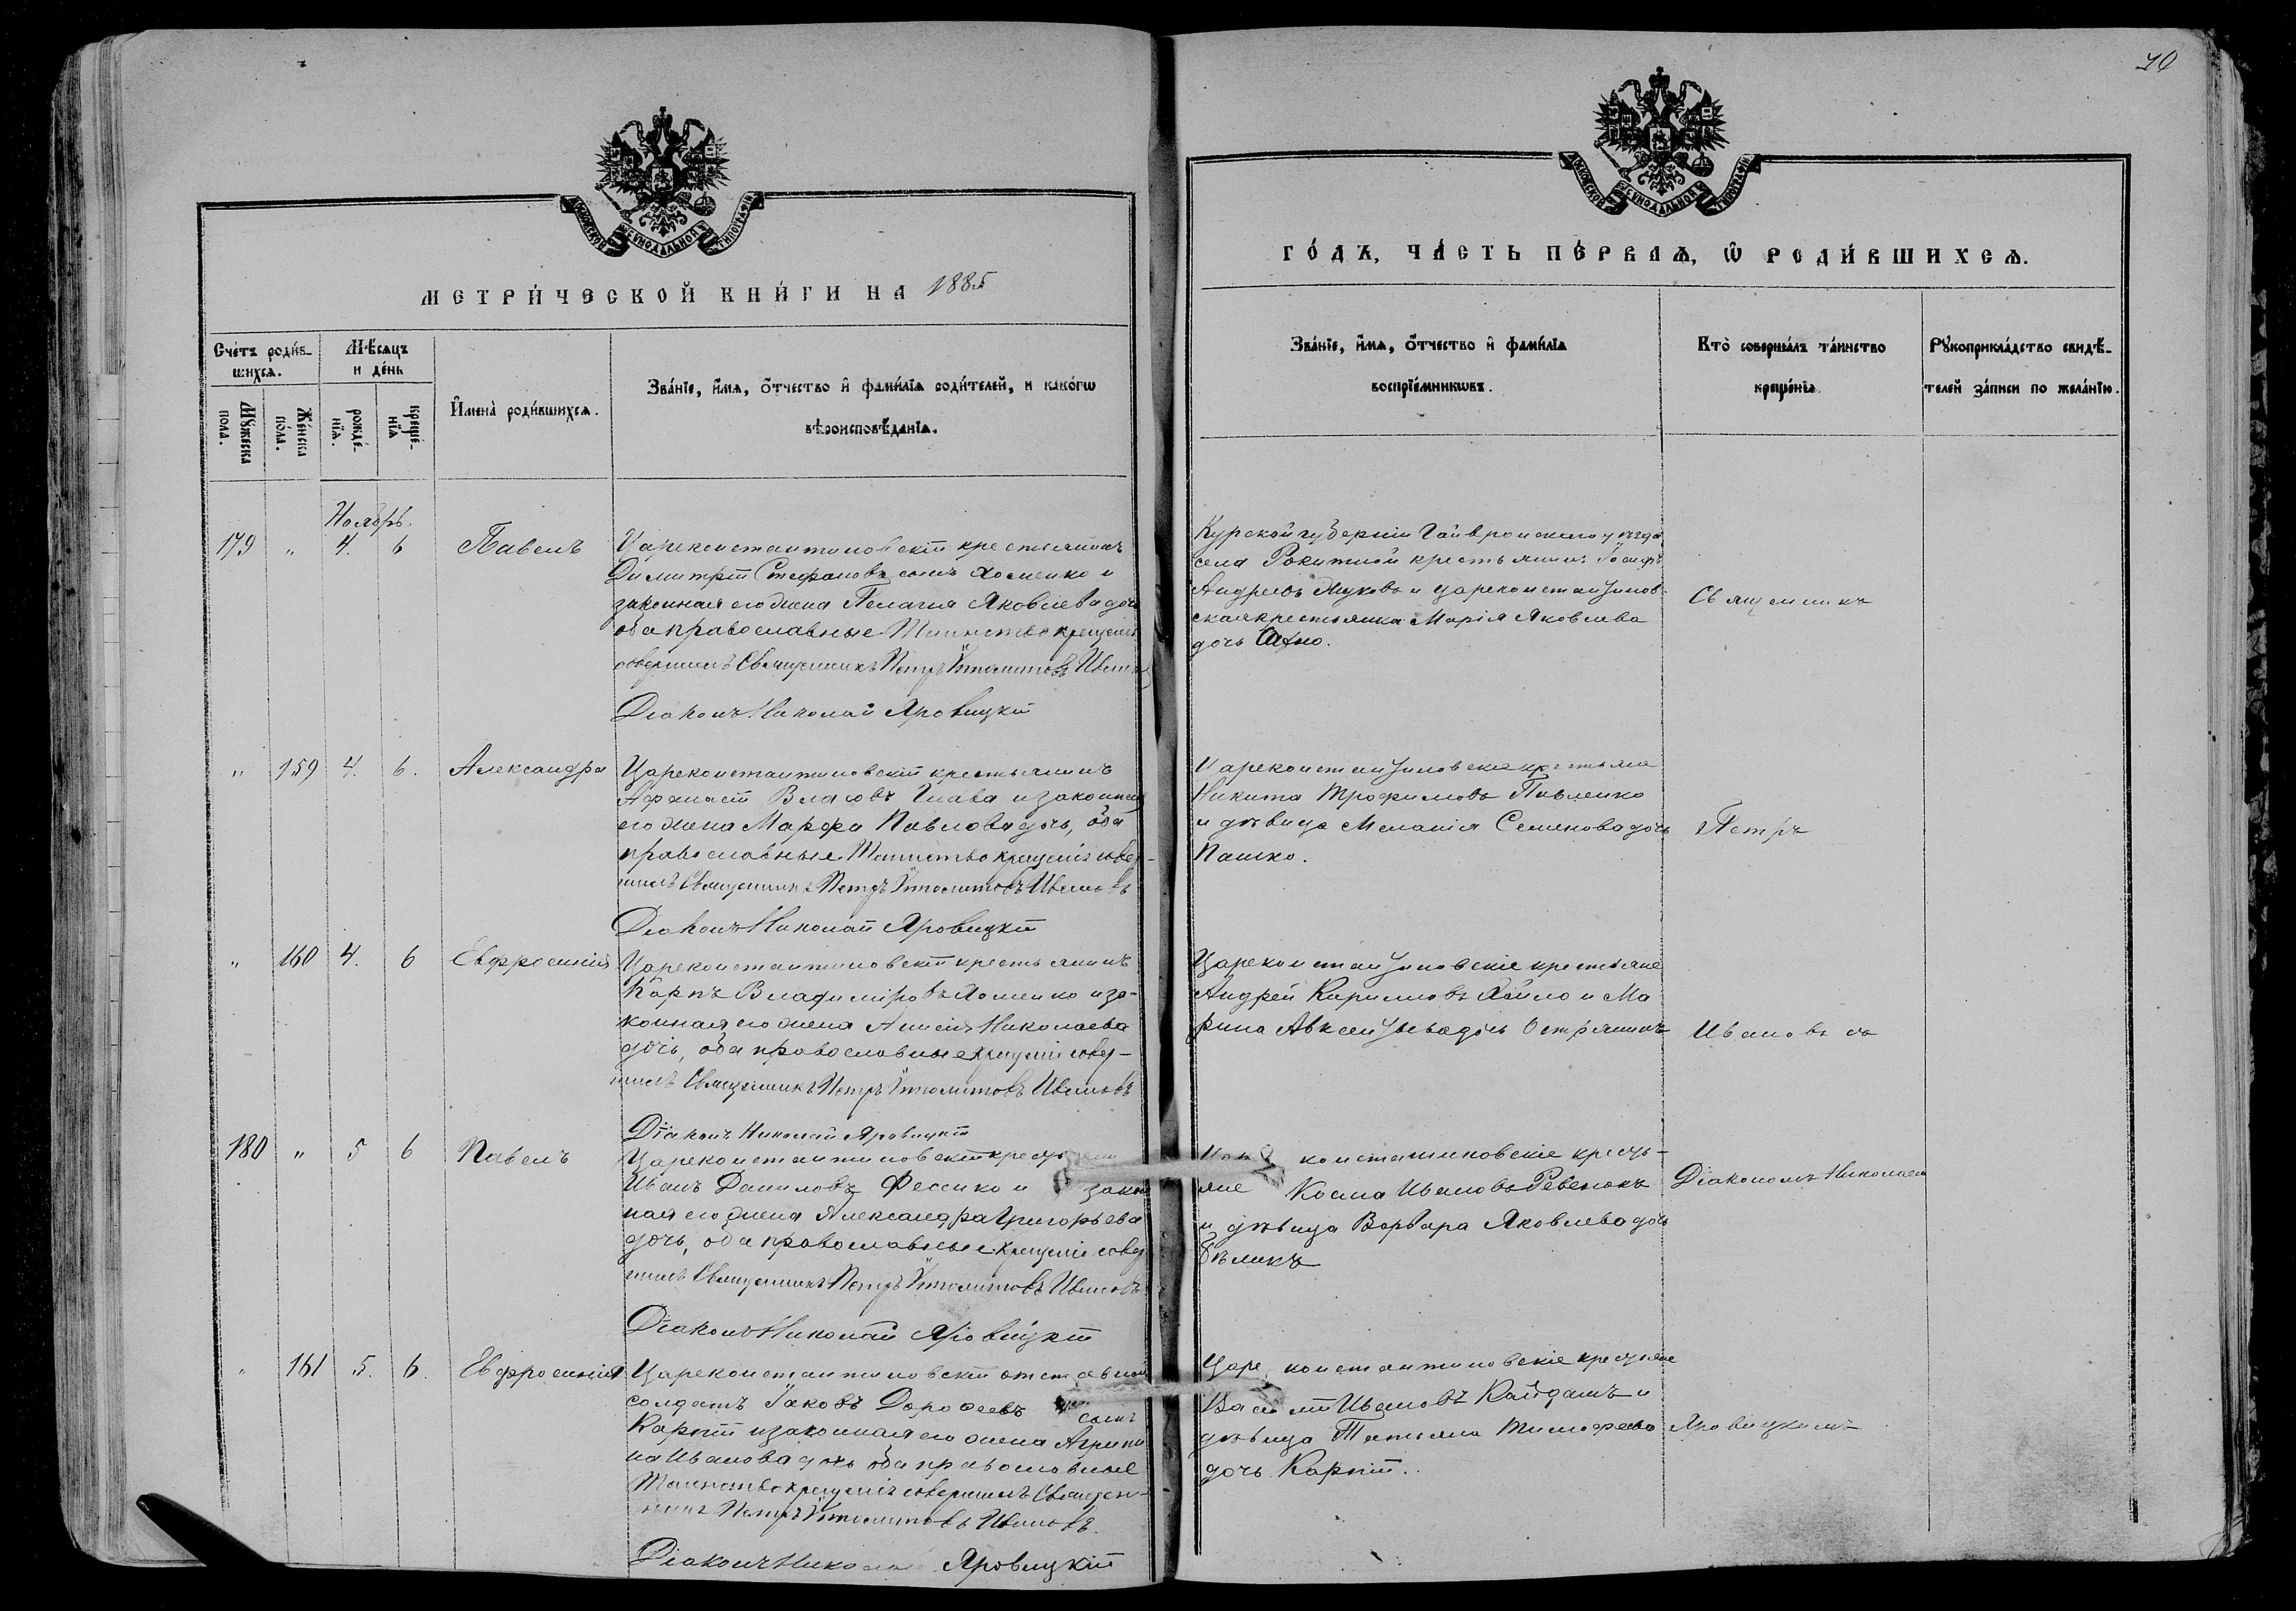 70
МЕТРИ́ЧЕСКОЙ КНИ́ГИ НА 1885
ГО́ДЪ, ЧА́СТЬ ПЕ́РВАѦ, Ѡ РОДИ́ВШИХСѦ.
Сче́тъ роди́в-
шихсѧ.
Мѣ́сѧцъ
и де́нь
Мꙋ́жеска
пола.
Же́нска
по́ла.
рожде́-
нїѧ.
креще́-
нїѧ
И҆мена̀ роди́вшихсѧ.
Зва́нїе, и҆́мѧ, ѻ҆́тчество и҆ фами́лїѧ роди́телей, и како́гѡ
вѣроисповѣ́данїѧ.
Зва́нїе, и҆́мѧ, ѻ҆́тчество и҆ фами́лїѧ
воспрїе́мникѡвъ.
Кто̀ соверша́лъ та́инство
креще́нїѧ
Рꙋкоприкла́дство свидѣ́-
телей за́писи по жела́нїю.
Ноябрь.
179 " 4. 6 Павелъ
Цареконстантиновскій крестьянинъ
Димитрій Стефановъ сынъ Хоменко и
законная его жена Пелагія Яковлева дочь
оба православные Таинство крещенія
совершилъ Священникъ Петръ Ипполитовъ Ивановъ
Діаконъ Николай Яровицкій
Курской губерніи Гайворонскаго уѣзда
села Ракитной крестьянинъ Іосифъ
Андреевъ Жуковъ и Цареконстантинов-
ская крестьянка Марія Яковлева
дочь
Священникъ
" 159 4. 6. Александра
Цареконстантиновскій крестьянинъ
Афанасій Власовъ и законная
его жена Марфа Павлова дочь, оба
православные Таинство крещенія совер-
шилъ Священникъ Петръ Ипполитовъ Ивановъ
Діаконъ Николай Яровицкій
Цареконстантиновскіе крестьяне
Никита Трофимовъ Павленко
и дѣвица Меланія Семенова дочь
Пашко.
Петръ
" 160 4. 6 Евфросинія
Цареконстантиновскій крестьянинъ
Карпъ Владиміровъ Хоменко и за-
конная его жена Анисія Николаева
дочь, оба православные крещеніе совер-
шилъ Священникъ Петръ Ипполитовъ Ивановъ
Діаконъ Николай Яровицкій
Цареконстантиновскіе крестьяне
Андрей Кирилловъ и Ма
рина Авксентьева дочь
Ивановъ съ
180 " 5 6 Павелъ
Цареконстантиновскій
Иванъ Даниловъ Фесенко и закон
ная его жена Александра Григорьева
дочь, оба православные крещеніе совер
шилъ Священникъ Петръ Ипполитовъ Ивановъ
Діаконъ Николай Яровицкій
константиновскіе кресть-
яне Косма Ивановъ Ревенокъ
и дѣвица Варвара Яковлева дочь
Бѣликъ
Діакономъ Николаемъ
" 161 5. 6. Евфросинія
Цареконстантиновскій отставной
солдатъ Іаковъ Дорофеевъ сынъ
Карпій и законная его жена Агрипи
на Иванова дочь оба православные
Таинство крещенія совершилъ Священ-
никъ Петръ Ипполитовъ Ивановъ.
Діаконъ Николай Яровицкій
Царе константиновскіе крестьяне
Василій Ивановъ Кайдашъ и
дѣвица Татьяна Тимофеева
дочь Карпій.
Яровицкимъ